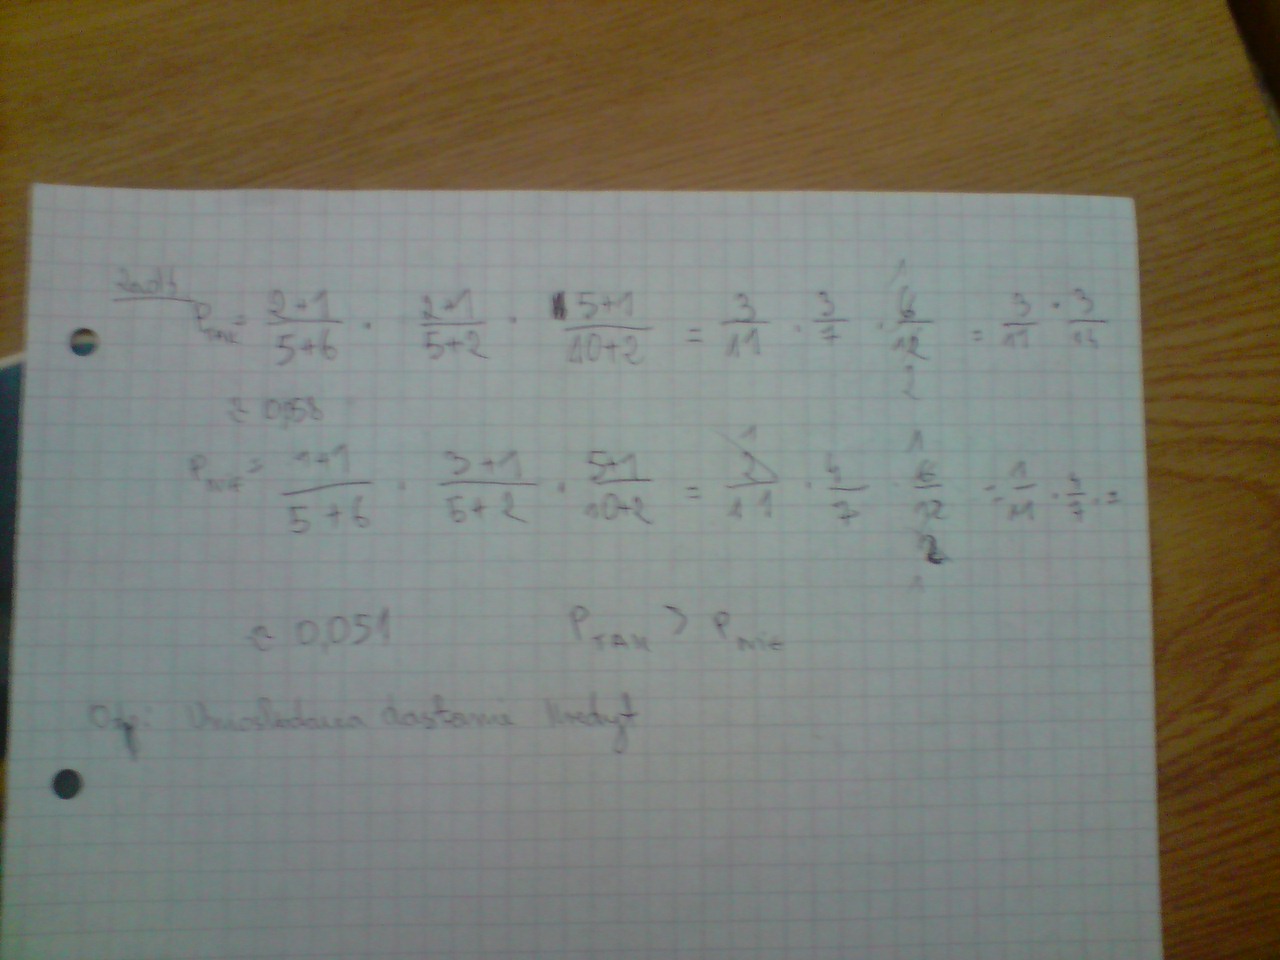 Zad 3
P_TAK = (2+1)/(5+6) · (2+1)/(5+2) · (5+1)/(10+2) = 3/11 · 3/7 · 6/12 = 3/11 · 3/14
≈ 0,058
P_NIE = (1+1)/(5+6) · (3+1)/(5+2) · (5+1)/(10+2) = 2/11 · 4/7 · 6/12 = 1/11 · 4/7 · =
≈ 0,051 P_TAK > P_NIE
Odp: Wnioskodawca dostanie kredyt